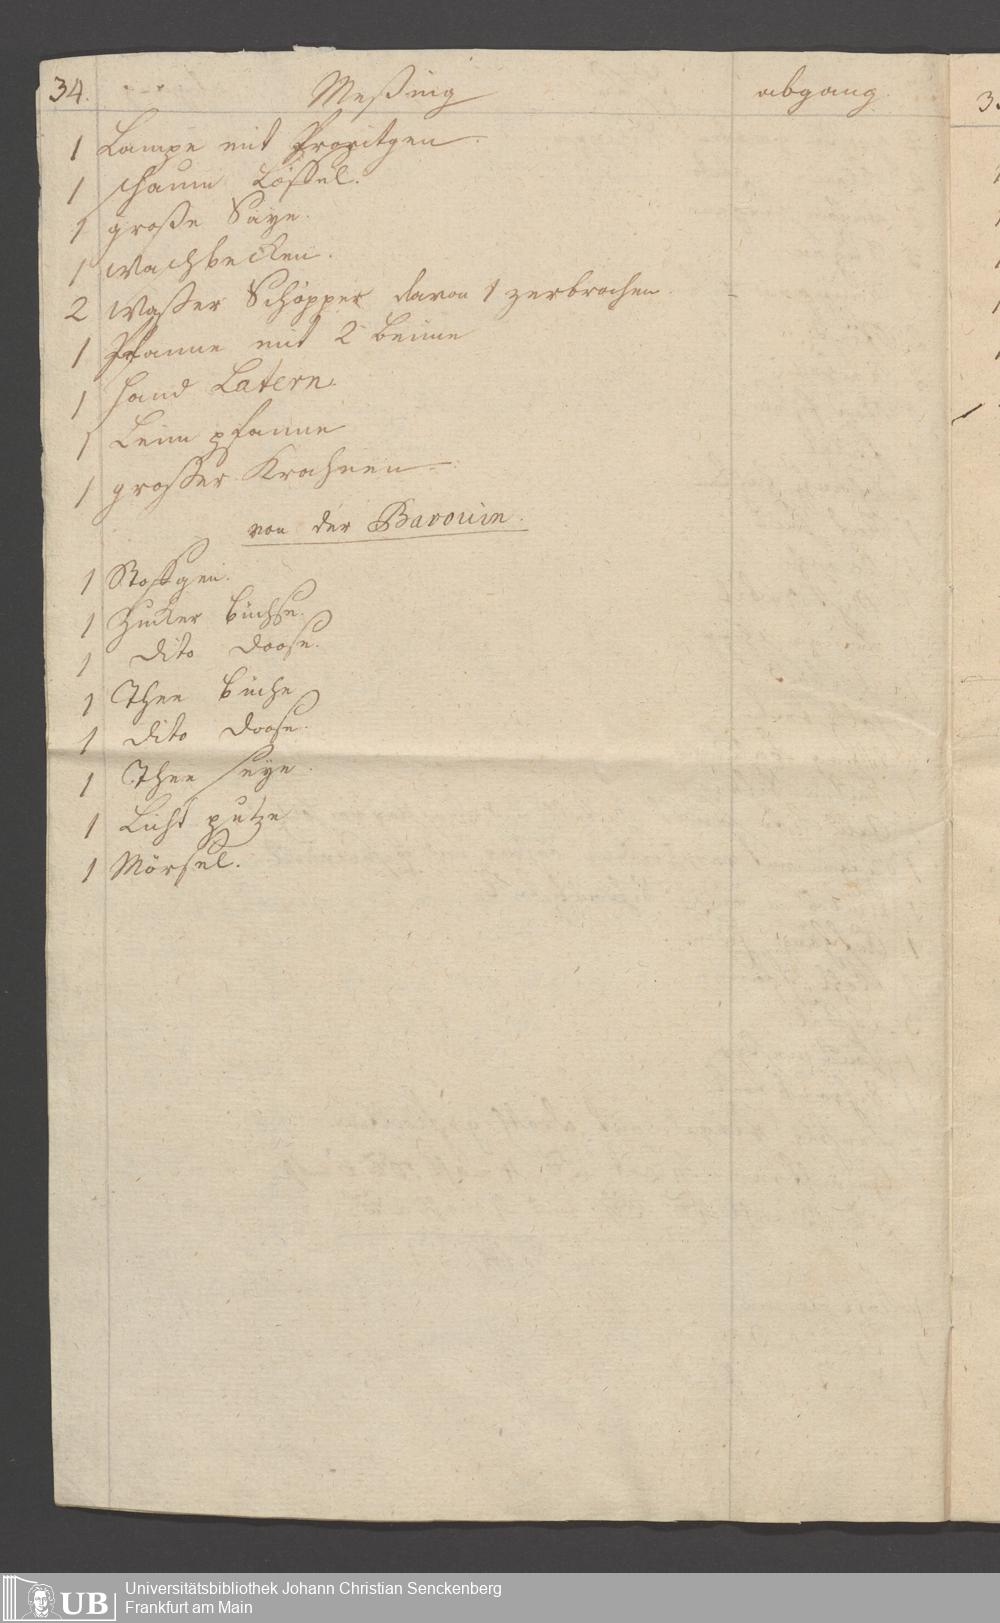 34. Meßing abgang
1 Lampe mit
1 schaum Löffel.
1 große Saye.
1 wachbecken.
2 waßer Schöpper davon 1 zerbrochen
1 Pfanne mit 2 beine
1 hand Latern.
1 Leim pfanne
1 großer Krahnen
von der Baronin.
1
1 Zucker büchse.
1 dito doose.
1 Thee büchse
1 dito doose.
1 Thee seye.
1 Licht putze
1 Mörsel.
UB Universitätsbibliothek Johann Christian Senckenberg
Frankfurt am Main